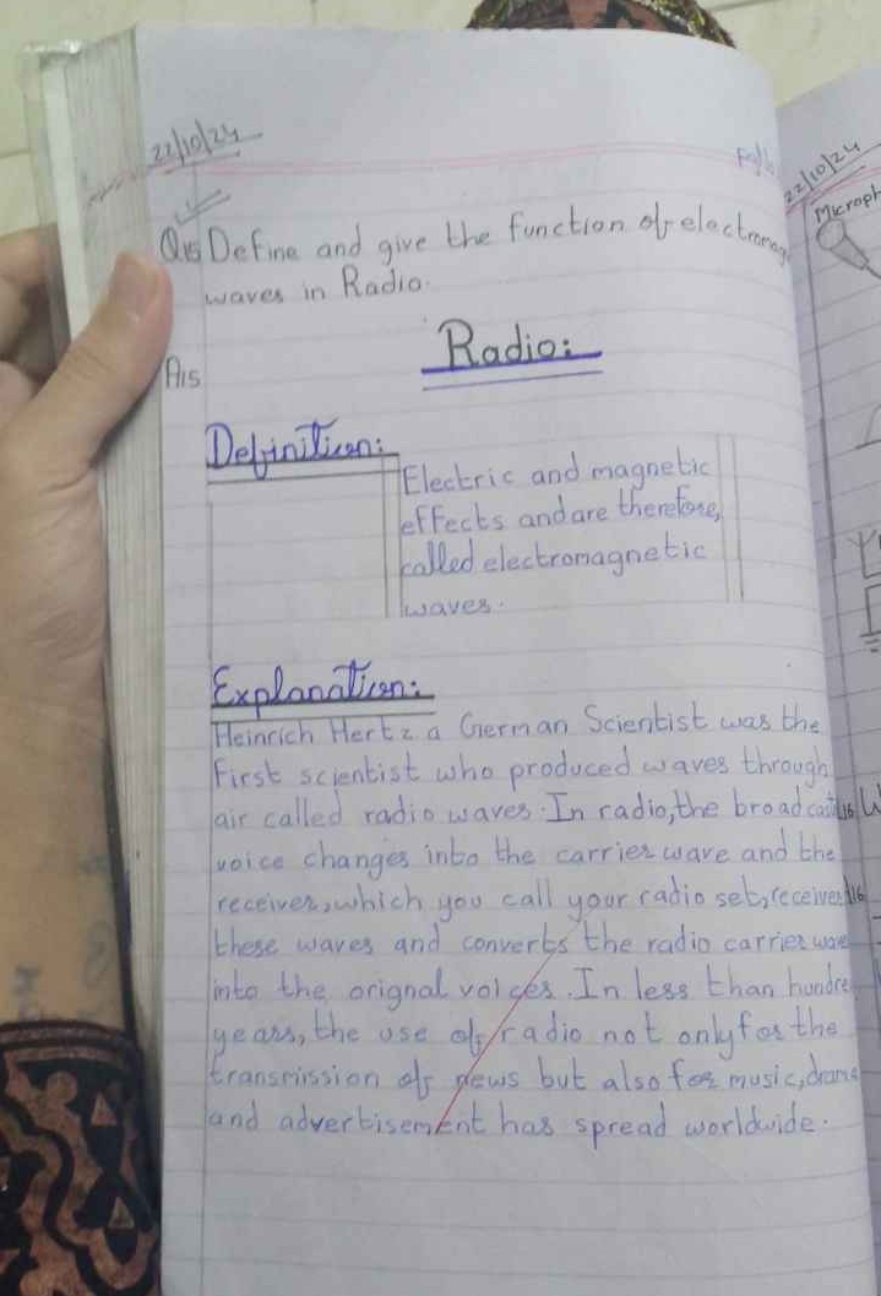 22/10/24
Q15 Define and give the function of electromag
waves in Radio.
A15
Radio:
Definition:
Electric and magnetic
effects and are therefore,
called electromagnetic
waves.
Explanation:
Heinrich Hertz a German Scientist was the
first scientist who produced waves through
air called radio waves. In radio, the broadcast
voice changes into the carrier wave and the
receiver, which you call your radio set, receives
these waves and converts the radio carrier wave
into the orignal voices. In less than hundre
years, the use of radio not only for the
transmission of news but also for music, drama
and advertisement has spread worldwide.
22/10/24
Microph